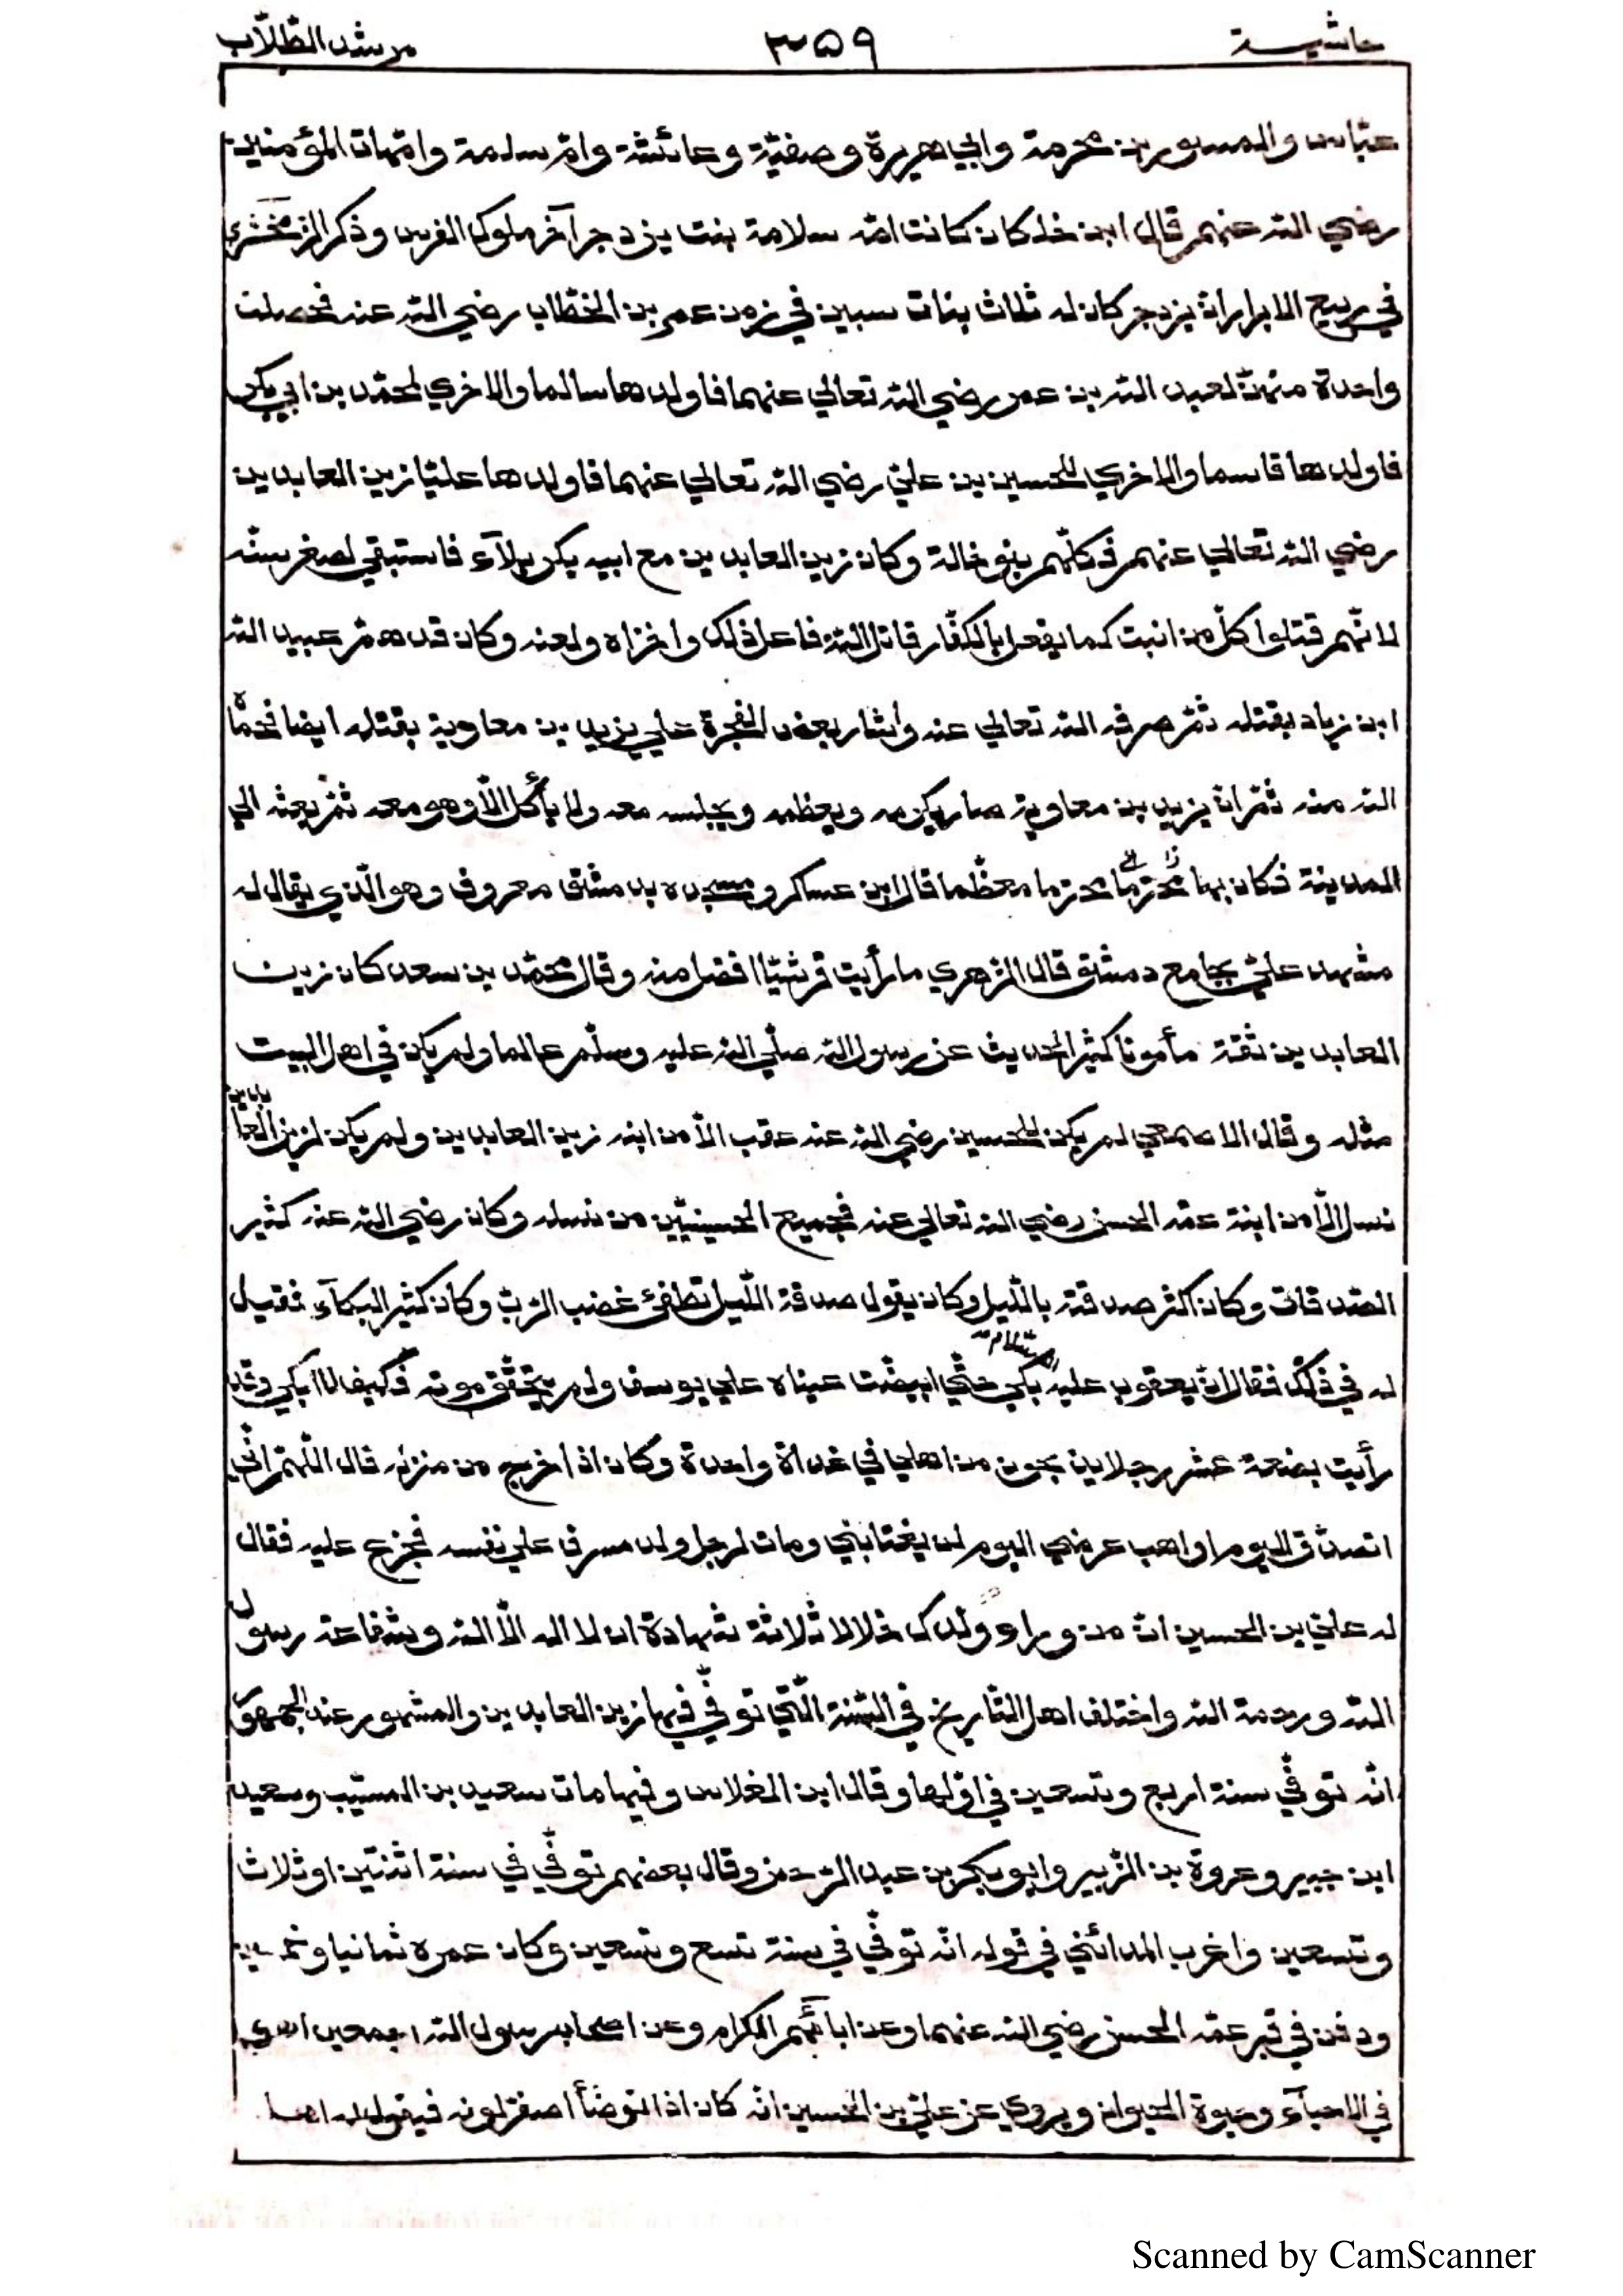 حاشية ٣٥٩ مرشد الطّلّاب
عبّاس والمسور بن مخرمة وابي هريرة وصفيّة وعائشة وامّ سلمة وامّهات المؤمنين
رضي الله عنهم قال ابن خلكان كانت امّه سلامة بنت يزدجر آخر ملوك الفرس وذكر الزمخشري
في ربيع الابرار انّ يزدجر كان له ثلاث بنات سبين في زمن عمر بن الخطّاب رضي الله عنه فحصلت
واحدة منهنّ لعبد الله بن عمر رضي الله تعالي عنهما فاولدها سالما والاخري لمحمّد بن ابي بكر
فاولدها قاسما والاخري للحسين بن عليّ رضي الله تعالي عنهما فاولدها عليّا زين العابدين
رضي الله تعالي عنهم فكلّهم بنو خالة وكان زين العابدين مع ابيه بكربلآء فاستبقي لصغر سنّه
لانّهم قتلوا كلّ من انبت كما يفعل بالكفّار قاتل الله فاعل ذلك واخزاه ولعنه وكان قد همّ عبيد الله
ابن زياد بقتله ثمّ صرفه الله تعالي عنه واشار بعض الفجرة علي يزيد بن معاوية بقتله ايضا فحماه
الله منه ثمّ انّ يزيد بن معاوية صار يكرمه ويعظمه ويجلسه معه ولا يأكل الّا وهو معه ثمّ بعثه الي
المدينة فكان بها محترما معظّما قال ابن عساكر ومسجده بدمشق معروف وهو الّذي يقال له
مشهد عليّ بجامع دمشق قال الزهري ما رأيت قرشيّا افضل منه وقال محمّد بن سعد كان زين
العابدين ثقة مأمونا كثير الحديث عن رسول الله صلّي الله عليه وسلّم عالما ولم يكن في اهل البيت
مثله وقال الاصمعي لم يكن للحسين رضي الله عنه عقب الّا من ابنه زين العابدين ولم يكن لزين العابدين
نسل الّا من ابنة عمّه الحسن رضي الله تعالي عنه فجميع الحسينيّين من نسله وكان رضي الله عنه كثير
الصّدقات وكان اكثر صدقته بالّليل وكان يقول صدقة الّليل تطفئ غضب الرّبّ وكان كثير البكآء فقيل
له في ذلك فقال انّ يعقوب عليه السّلام بكي حتّي ابيضّت عيناه علي يوسف ولم يتحقّق موته فكيف لا ابكي وقد
رأيت بضعة عشر رجلا يذبحون من اهلي في غداة واحدة وكان اذا خرج من منزله قال اللّهمّ انّي
اتصدّق اليوم او اهب عرضي اليوم لمن يغتابني ومات لرجل ولد مسرف علي نفسه فجزع عليه فقال
له عليّ بن الحسين انّ من وراء ولدك خلالا ثلاثة شهادة ان لا اله الّا الله وشفاعة رسول
الله ورحمة الله واختلف اهل التّاريخ في السّنة الّتي توفّي فيها زين العابدين والمشهور عند الجمهور
انّه توفّي سنة اربع وتسعين في اوّلها وقال ابن الفلاس وفيها مات سعيد بن المسيّب وسعيد
ابن جبير وعروة بن الزّبير وابو بكر بن عبد الرّحمن وقال بعضهم توفّي في سنة اثنتين او ثلاث
وتسعين واغرب المدائني في قوله انّه توفّي في سنة تسع وتسعين وكان عمره ثمانيا وخمسين
ودفن في قبر عمّه الحسن رضي الله عنهما وعن ابائهم الكرام وعن اصحاب رسول الله اجمعين
في الاحيآء وحيوة الحيوان ويروي عن عليّ بن الحسين انّه كان اذا توضّأ اصفرّ لونه فيقول له اهله
Scanned by CamScanner